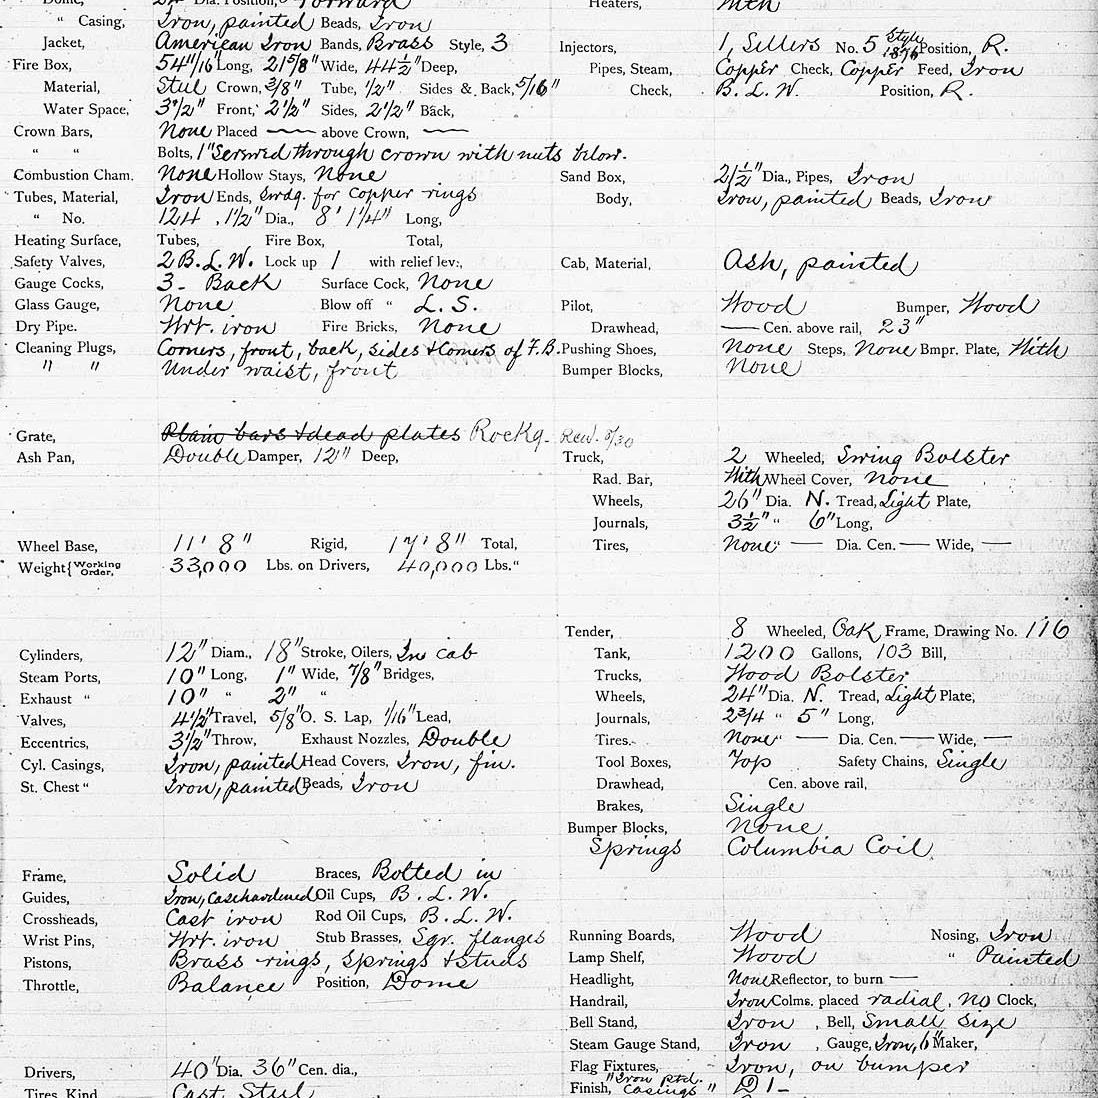 Dome, 24" Dia. Position, Forward
" Casing, Iron, painted Beads, Iron
Jacket, American Iron Bands, Brass Style, 3
Fire Box, 54 11/16" Long, 21 5/8" Wide, 44 1/2" Deep,
Material, Steel Crown, 3/8" Tube, 1/2" Sides & Back, 5/16"
Water Space, 3 1/2" Front, 2 1/2" Sides, 2 1/2" Back,
Crown Bars, None Placed — above Crown, —
" " Bolts, 1" Screwed through crown with nuts below.
Combustion Cham. None Hollow Stays, None
Tubes, Material, Iron Ends, Swdg. for copper rings
" No. 124 , 1 1/2" Dia., 8' 1 1/4" Long,
Heating Surface, Tubes, Fire Box, Total,
Safety Valves, 2 B.L.W. Lock up 1 with relief lev.,
Gauge Cocks, 3 - Back Surface Cock, None
Glass Gauge, None Blow off " L.S.
Dry Pipe. Wrt. iron Fire Bricks, None
Cleaning Plugs, Corners, front, back, sides & corners of F.B.
" " Under waist, front
Grate, Plain bars & dead plates Rockg. Rew. 8/30
Ash Pan, Double Damper, 12" Deep,
Wheel Base, 11' 8" Rigid, 17' 8" Total,
Weight { Working Order, 33,000 Lbs. on Drivers, 40,000 Lbs. "
Cylinders, 12" Diam., 18" Stroke, Oilers, In cab
Steam Ports, 10" Long, 1" Wide, 7/8" Bridges,
Exhaust " 10" " 2" "
Valves, 4 1/2" Travel, 5/8" O. S. Lap, 1/16" Lead,
Eccentrics, 3 1/2" Throw, Exhaust Nozzles, Double
Cyl. Casings, Iron, painted Head Covers, Iron, fin.
St. Chest " Iron, painted Beads, Iron
Frame, Solid Braces, Bolted in
Guides, Iron, Casehardened Oil Cups, B.L.W.
Crossheads, Cast iron Rod Oil Cups, B.L.W.
Wrist Pins, Wrt. iron Stub Brasses, Sqr. flanges
Pistons, Brass rings, springs & studs
Throttle, Balance Position, Dome
Drivers, 40" Dia. 36" Cen. dia.,
Tires, Kind Cast Steel
Heaters, With
Injectors, 1, Sellers No. 5 Style 1876 Position, R.
Pipes, Steam, Copper Check, Copper Feed, Iron
Check, B.L.W. Position, R.
Sand Box, 21 1/2" Dia., Pipes, Iron
Body, Iron, painted Beads, Iron
Cab, Material, Ash, painted
Pilot, Wood Bumper, Wood
Drawhead, — Cen. above rail, 23"
Pushing Shoes, None Steps, None Bmpr. Plate, With
Bumper Blocks, None
Truck, 2 Wheeled, Swing Bolster
Rad. Bar, With Wheel Cover, none
Wheels, 26" Dia. N. Tread, Light Plate,
Journals, 3 1/2" " 6" Long,
Tires, None " — Dia. Cen. — Wide, —
Tender, 8 Wheeled, Oak Frame, Drawing No. 116
Tank, 1200 Gallons, 103 Bill,
Trucks, Wood Bolster
Wheels, 24" Dia. N. Tread, Light Plate,
Journals, 2 3/4 " 5" Long,
Tires. None " — Dia. Cen. — Wide, —
Tool Boxes, Top Safety Chains, Single
Drawhead, Cen. above rail,
Brakes, Single
Bumper Blocks, None
Springs Columbia Coil
Running Boards, Wood Nosing, Iron
Lamp Shelf, Wood " Painted
Headlight, None Reflector, to burn —
Handrail, Iron Colms. placed radial, No Clock,
Bell Stand, Iron , Bell, Small size
Steam Gauge Stand, Iron , Gauge, Iron, 6" Maker,
Flag Fixtures, Iron, on bumper
Finish, "Iron ptd. Casings" D 1 -